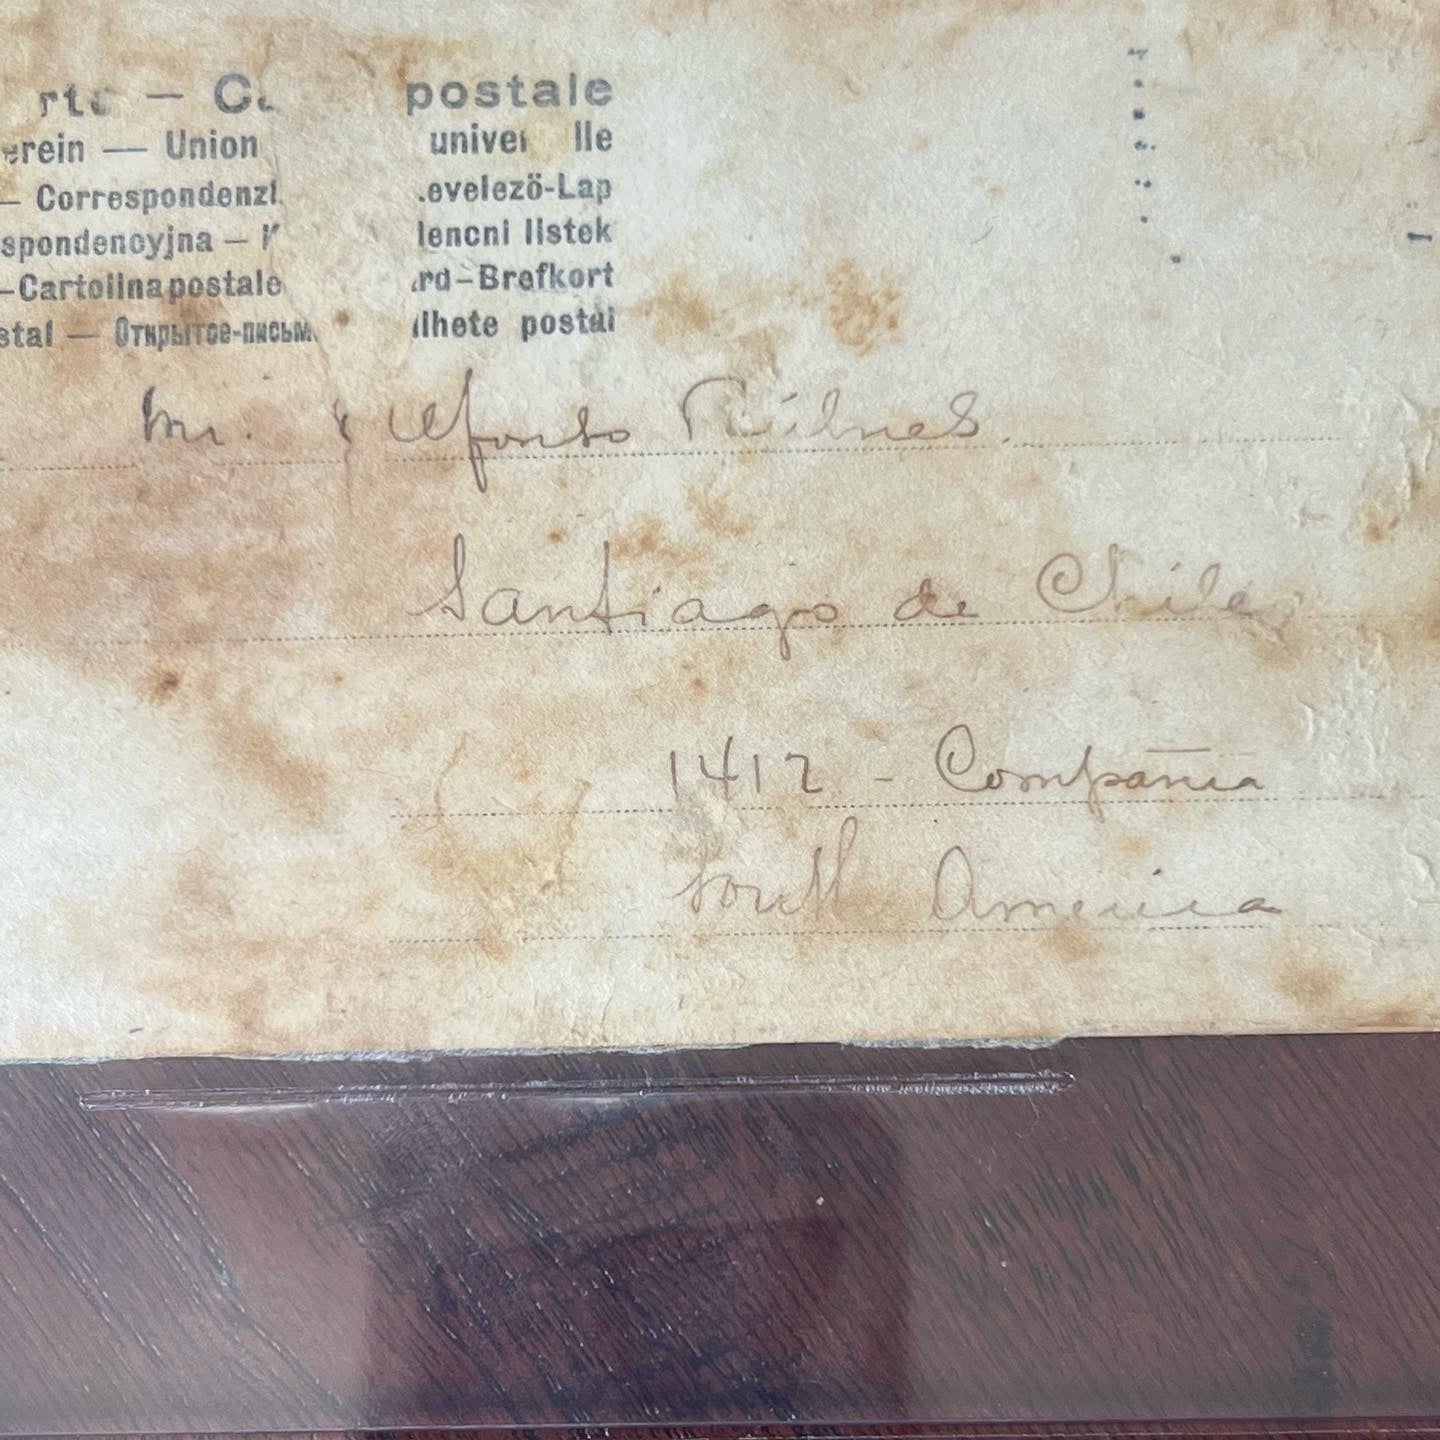 postale
erein — Union univer lle
— Correspondenzk evelezö-Lap
spondencyjna — lencni listek
–Cartolina postale rd–Brefkort
stal — Открытое-письм lhete postal
Mr. Alfonso
Santiago de Chile
1412 - Compañia
South America